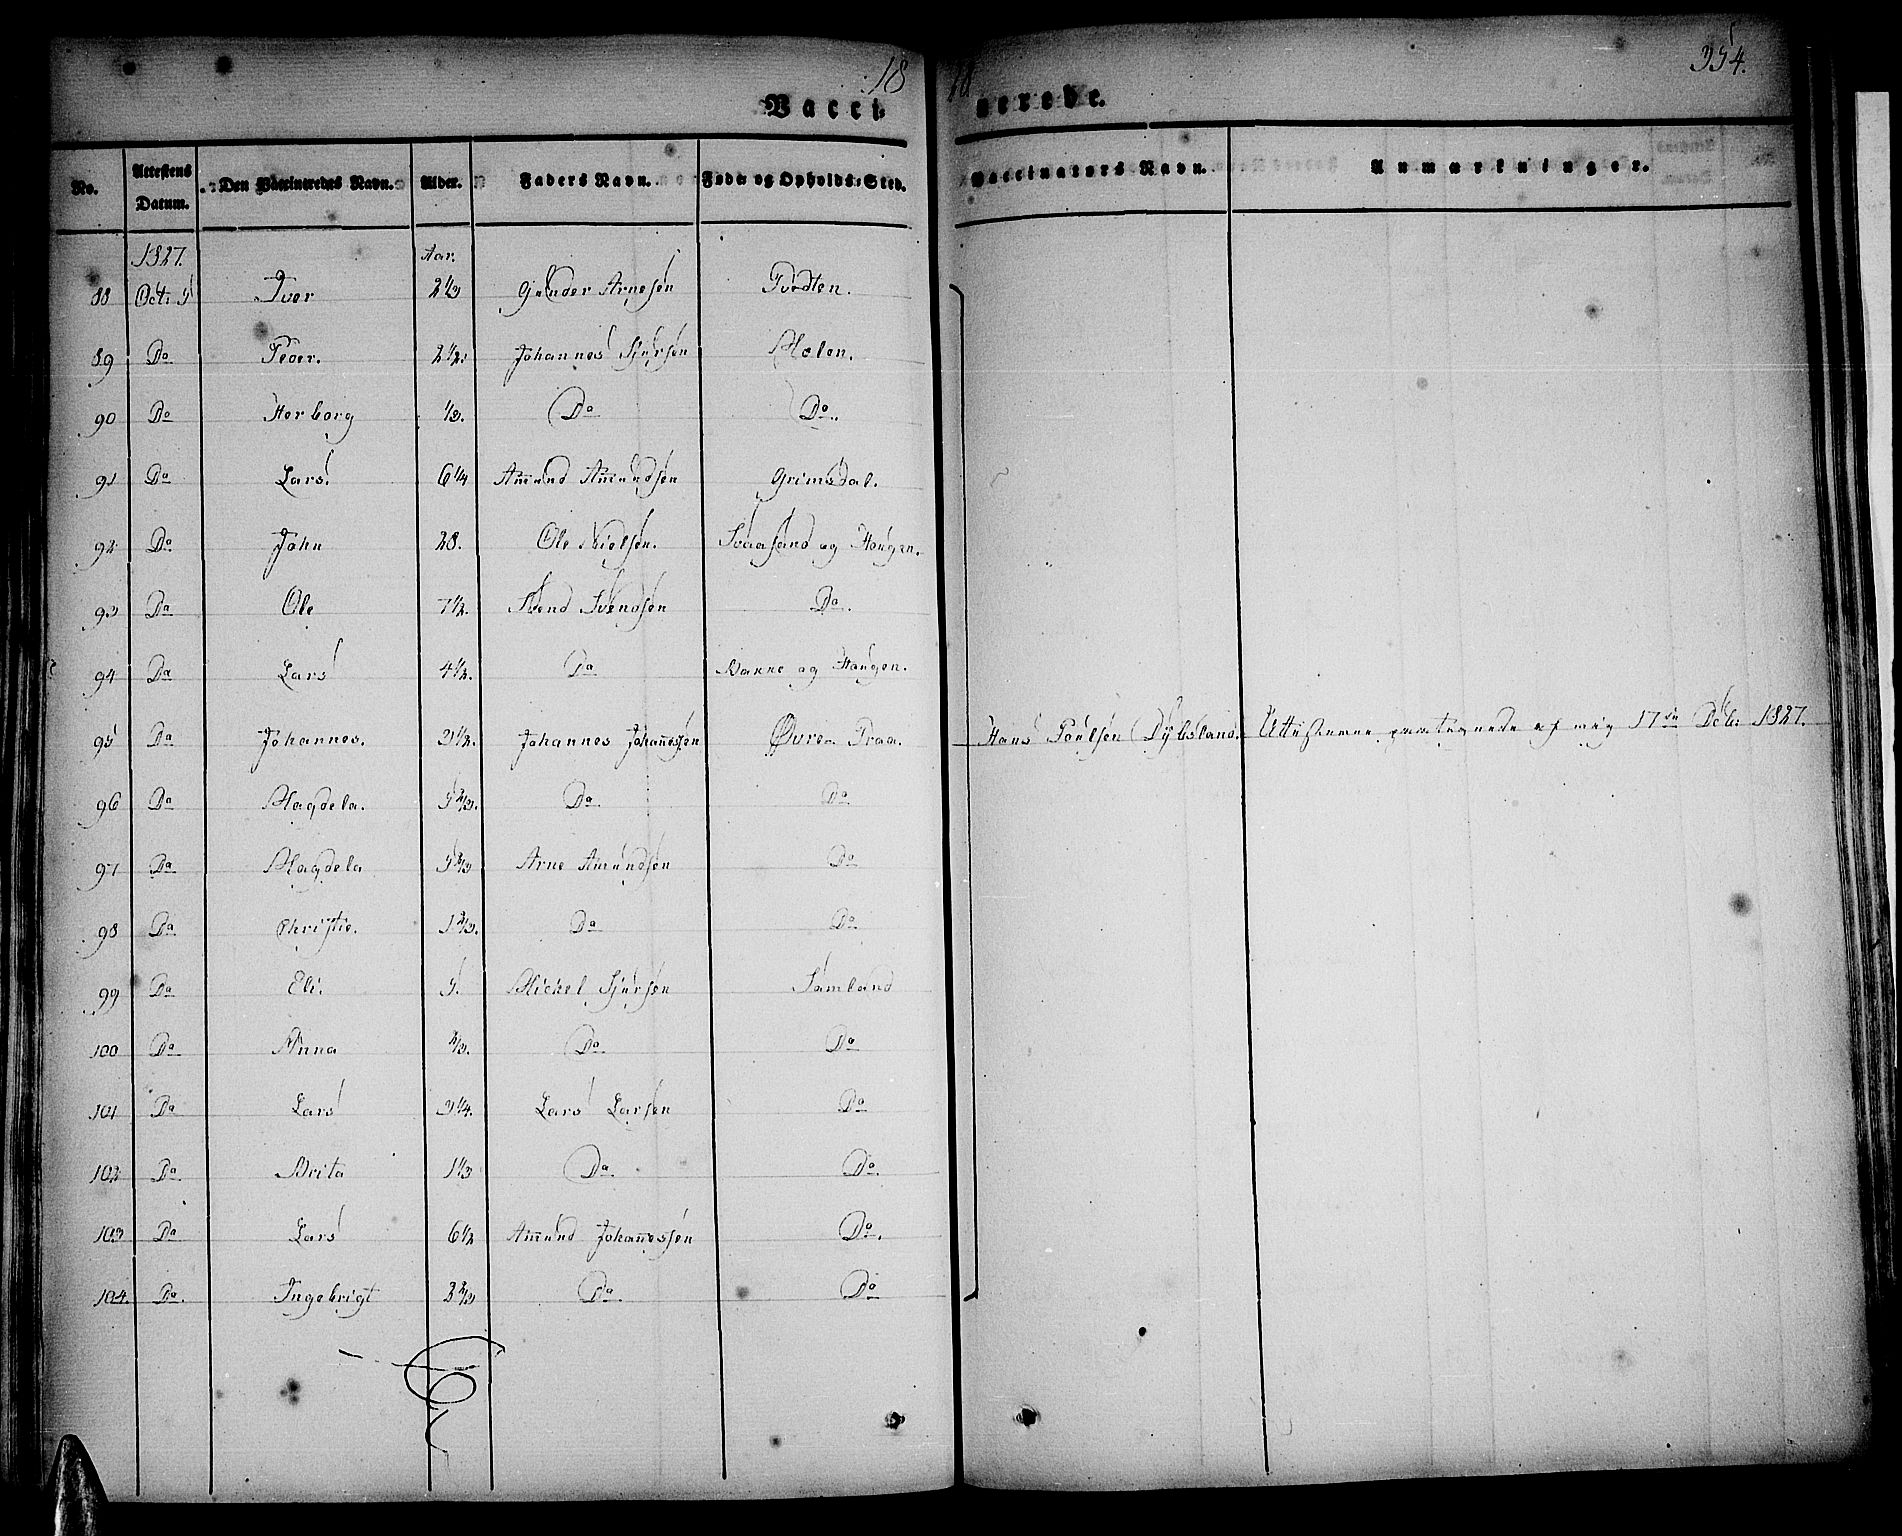 18 354.
Vaccinerede.
No. Attestens Datum. Den Vaccineredes Navn. Alder. Faders Navn. Føde og Opholds-Sted. Vaccinators Navn. Anmærkninger.
1827. Aar.
88 Oct. 5 Iver 2 1/3 Gunder Arnesen Tvedten.
89 Do Peder. 2 1/2. Johannes Sjursen Molen.
90 Do Herborg 1/3. Do Do.
91 Do Lars. 6 1/4 Amund Amundsen Grimsdal.
92 Do John 28. Ole Nielsen. og Haugen.
93 Do Ole 7 1/2. Svend Svendsen Do.
94 Do Lars 4 1/2. Do Nanne og Haugen.
95 Do Johannes. 3 1/2. Johannes Johannessen Øvre Traa. Hans Poulsen Dybsland. af mig 17de Decb. 1827.
96 Do Magdela. 5 2/3. Do Do
97 Do Magdela 5 2/3 Arne Amundsen Do
98 Do Christie. 1 2/3. Do Do
99 Do Eli. 5. Mickel Sjursen Samland
100 Do Anna 2/3. Do. Do
101 Do Lars 3 1/4. Lars Larsen Do
102 Do. Brita 1 1/3 Do. Do.
103 Do Lars 6 1/2 Amund Johannessen Do.
104. Do. Ingebrigt 2 2/3 Do. Do